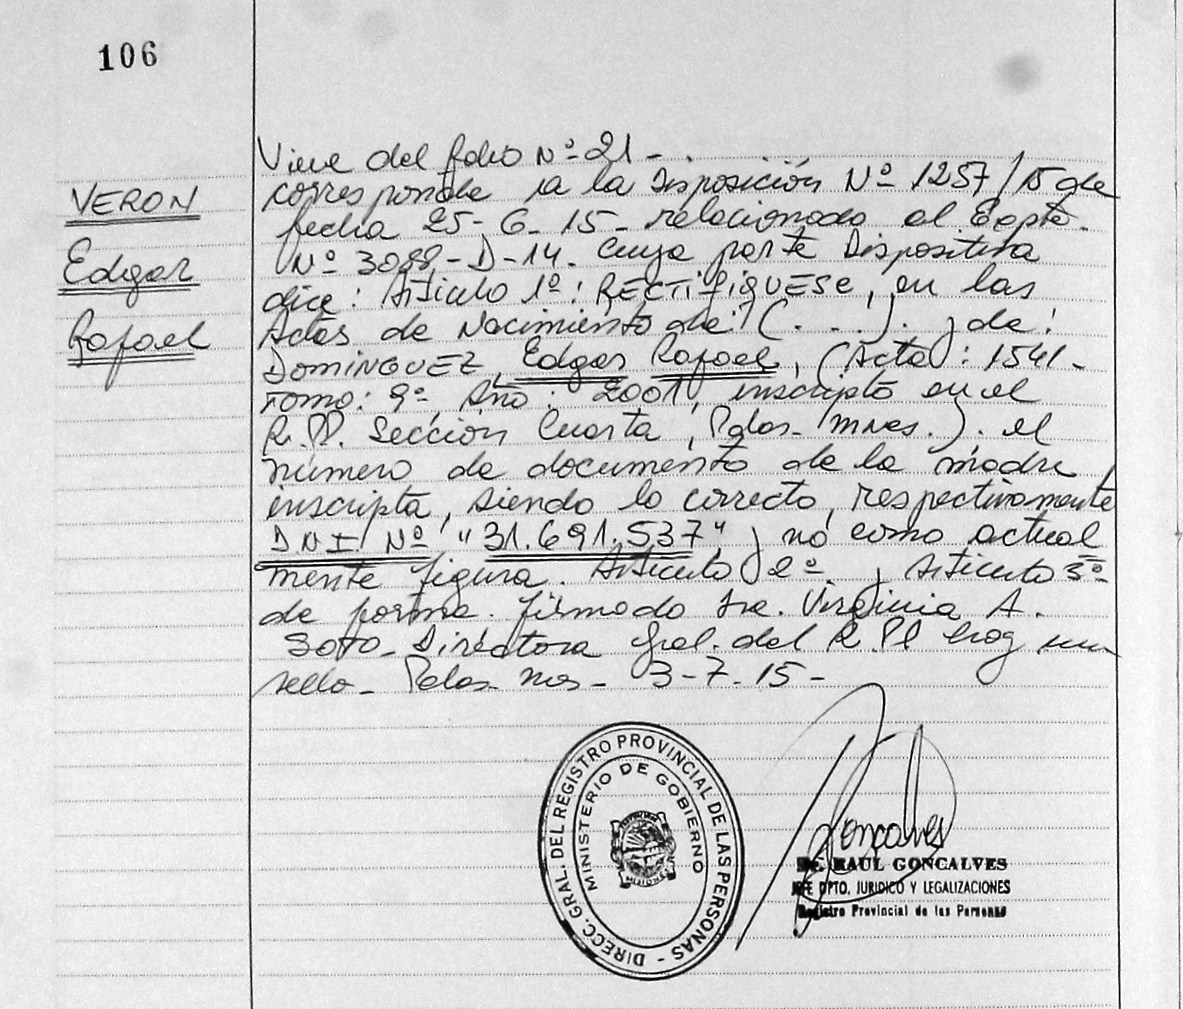 106
VERON
Edgar
Rafael
Viene del folio Nº 21 -
corresponde a la Disposición Nº 1257/15 de
fecha 25-6-15- relacionado al Expte.
Nº 3088-D-14. Cuya parte Dispositiva
dice: Articulo 1º: RECTIFIQUESE, en las
Actas de Nacimiento de: (....). y de:
DOMINGUEZ, Edgar Rafael, (Acta: 1541-
Tomo: 9º Año: 2001, inscripto en el
R.PP. Sección Cuarta, Pdas- Mnes.). el
número de documento de la madre
inscripta, siendo lo correcto, respectivamente
D.N.I. Nº "31.691.537" y no como actual
mente figura. Articulo 2º y Articulo 3º
de forma. firmado Sra. Virginia A.
Soto- Directora Gral. del R.PP hay un
sello- Pdas Mns- 3-7-15-
DIRECC. GRAL. DEL REGISTRO PROVINCIAL DE LAS PERSONAS -
MINISTERIO DE GOBIERNO
MISIONES
Goncalves
Dr. RAUL GONCALVES
JEFE DPTO. JURIDICO Y LEGALIZACIONES
Registro Provincial de las Personas